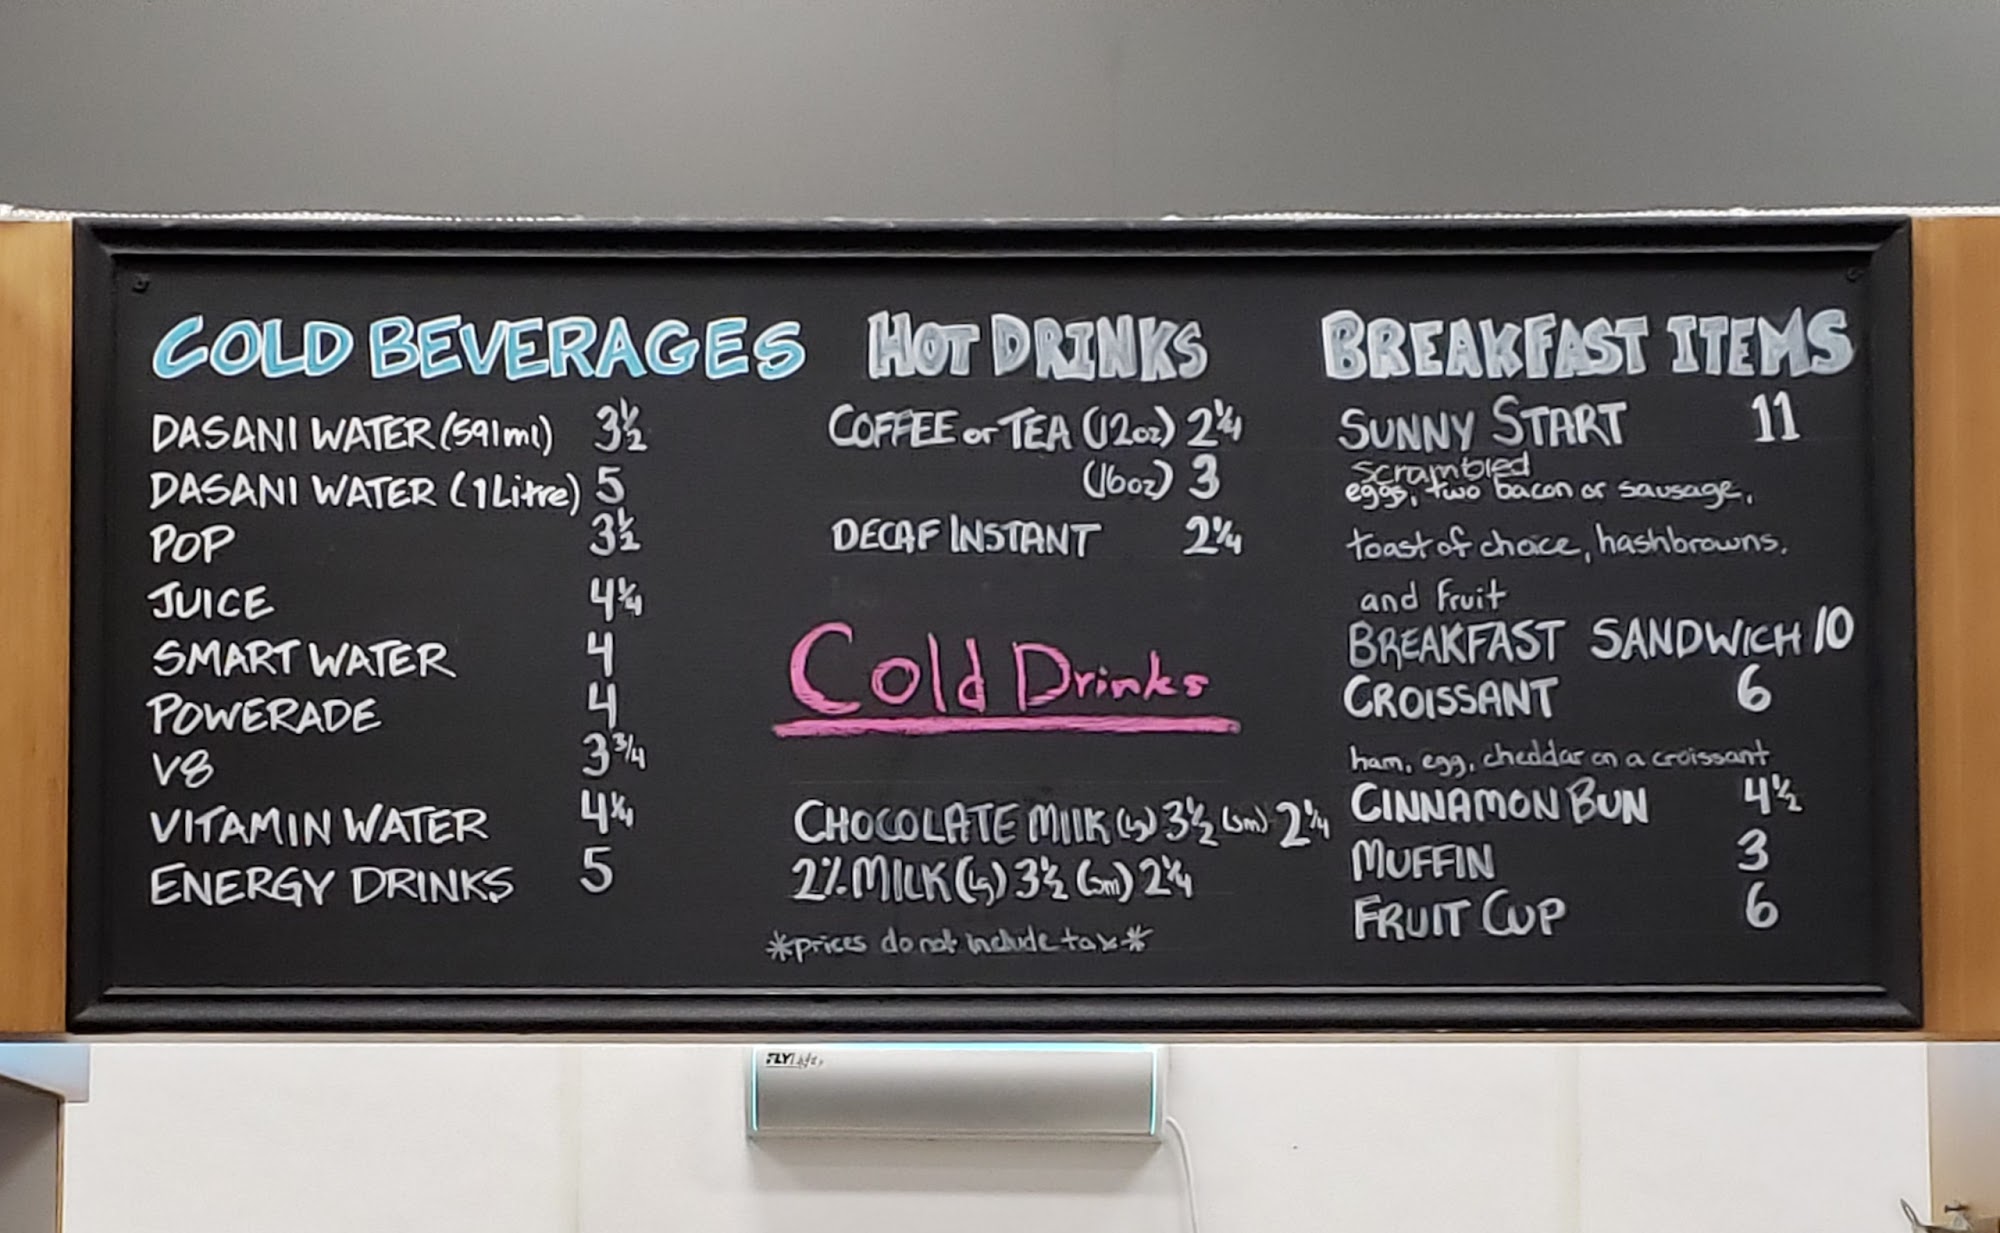 COLD BEVERAGES
DASANI WATER (591ml) 3½
DASANI WATER (1 Litre) 5
POP 3½
JUICE 4¼
SMART WATER 4
POWERADE 4
V8 3¾
VITAMIN WATER 4¼
ENERGY DRINKS 5
HOT DRINKS
COFFEE or TEA (12oz) 2¼
(16oz) 3
DECAF INSTANT 2¼
Cold Drinks
CHOCOLATE MILK (lg) 3½ (sm) 2¼
2% MILK (lg) 3½ (sm) 2¼
*prices do not include tax*
BREAKFAST ITEMS
SUNNY START 11
scrambled
eggs, two bacon or sausage,
toast of choice, hashbrowns,
and fruit
BREAKFAST SANDWICH 10
CROISSANT 6
ham, egg, cheddar on a croissant
CINNAMON BUN 4½
MUFFIN 3
FRUIT CUP 6
FLY